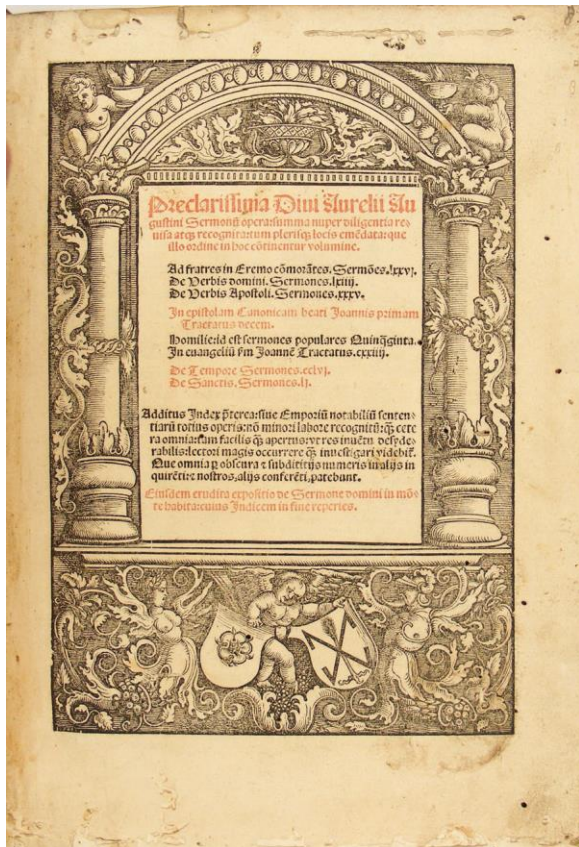 Preclarissima Divi Aurelii Au
gustini Sermonū opera: summa nuper diligentia re-
uisa atqꝫ recognita: tum plerisqꝫ locis emēdata: que
illo ordine in hoc cōtinentur volumine.
Ad fratres in Eremo cōmorātes. Sermōes. lxxvj.
De Verbis domini. Sermones. lxiiij.
De Verbis Apostoli. Sermones. xxxv.
In epistolam Canonicam beati Joannis primam
Tractatus decem.
Homilie: id est sermones populares Quinq̄ginta.
In euangeliū sm̄ Joannē Tractatus. cxxiiij.
De Tempore Sermones. cclvj.
De Sanctis. Sermones. lj.
Additus Index p̄terea: siue Emporiū notabiliū senten-
tiarū totius operis: nō minori labore recognitū: q̄ꝫ cete
ra omnia: tam facilis q̄ꝫ apertus: vt res inuētu desyde-
rabilis: lectori magis occurrere q̄ꝫ inuestigari videbit̄.
Que omnia ꝑ obscura ⁊ subdititijs numeris in alijs in
quirēti: ⁊ nostros, alijs conferēti, patebunt.
Eiusdem erudita expositio de Sermone domini in mō-
te habita: cuius Indicem in fine reperies.